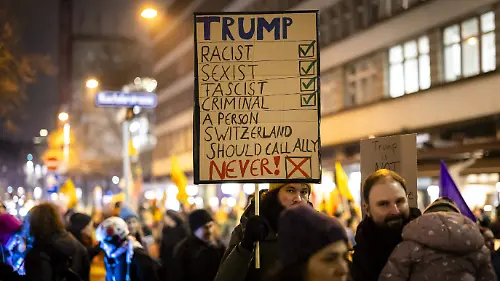 TRUMP
RACIST ✓
SEXIST ✓
FASCIST ✓
CRIMINAL ✓
A PERSON
SWITZERLAND
SHOULD CALL ALLY
NEVER! X
Trump is
NOT